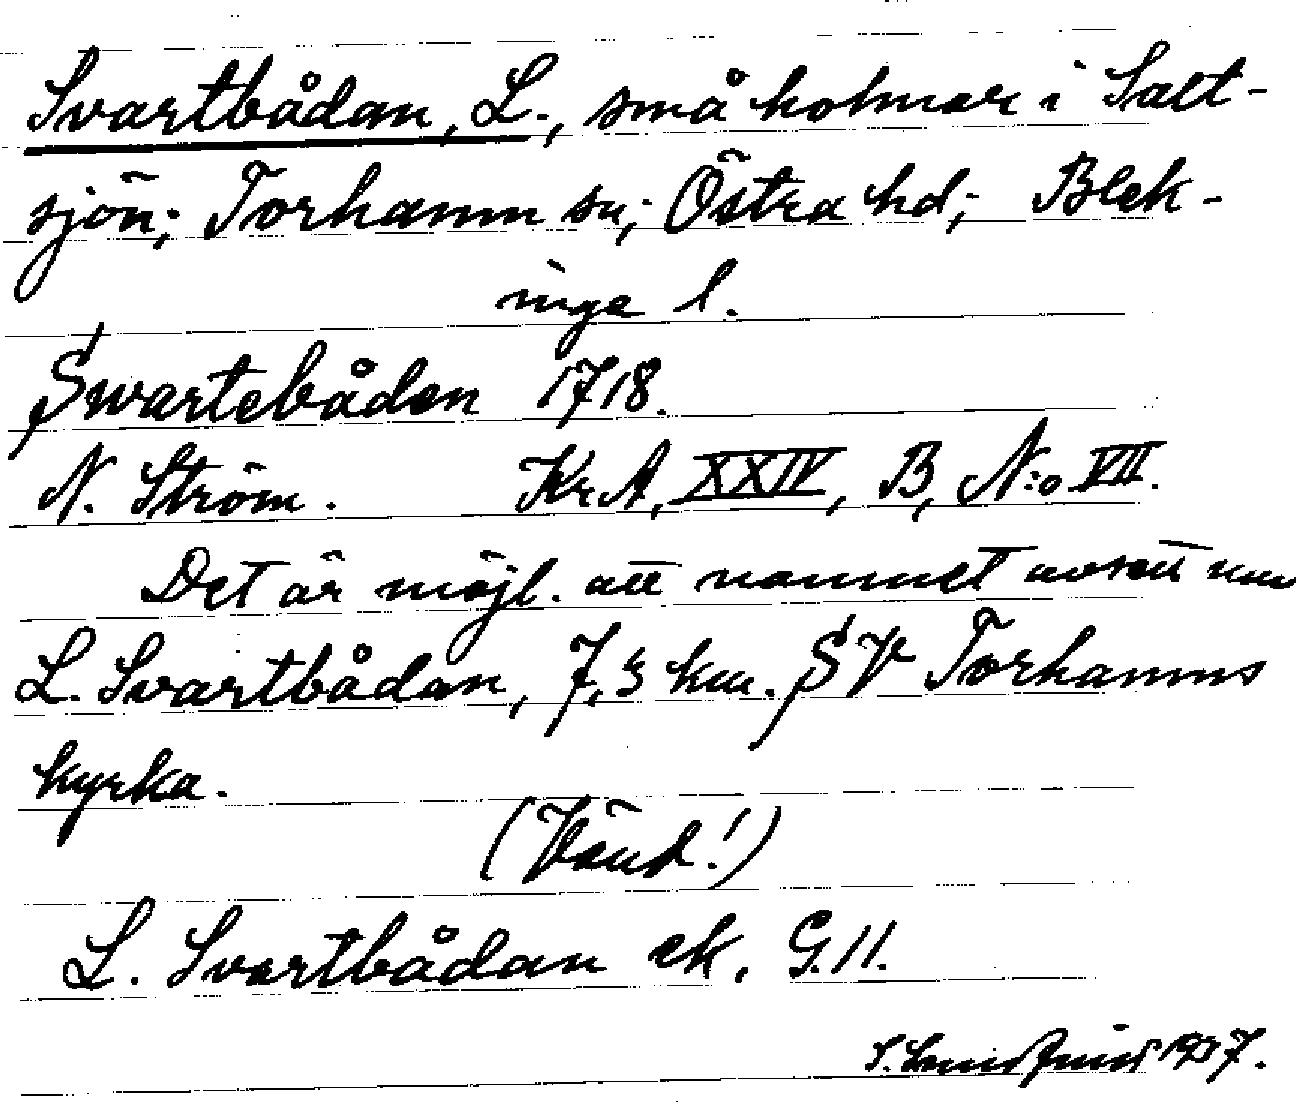 Svartbådan, L., små holmar i Salt-
sjön; Torhamn sn; Östra hd; Blek-
inge l.
Swartebåden 1718.
N. Ström. Kr A, XXIV, B, N:o VII.
Det är möjl. att namnet avsett
L. Svartbådan, 7,3 km. SV Torhamns
kyrka.
(Vänd!)
L. Svartbådan ek. G.11.
S. Lundquist 1937.